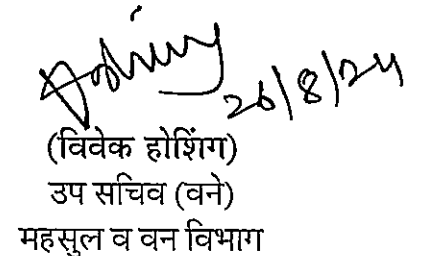 26/8/24
(विवेक होशिंग)
उप सचिव (वने)
महसुल व वन विभाग